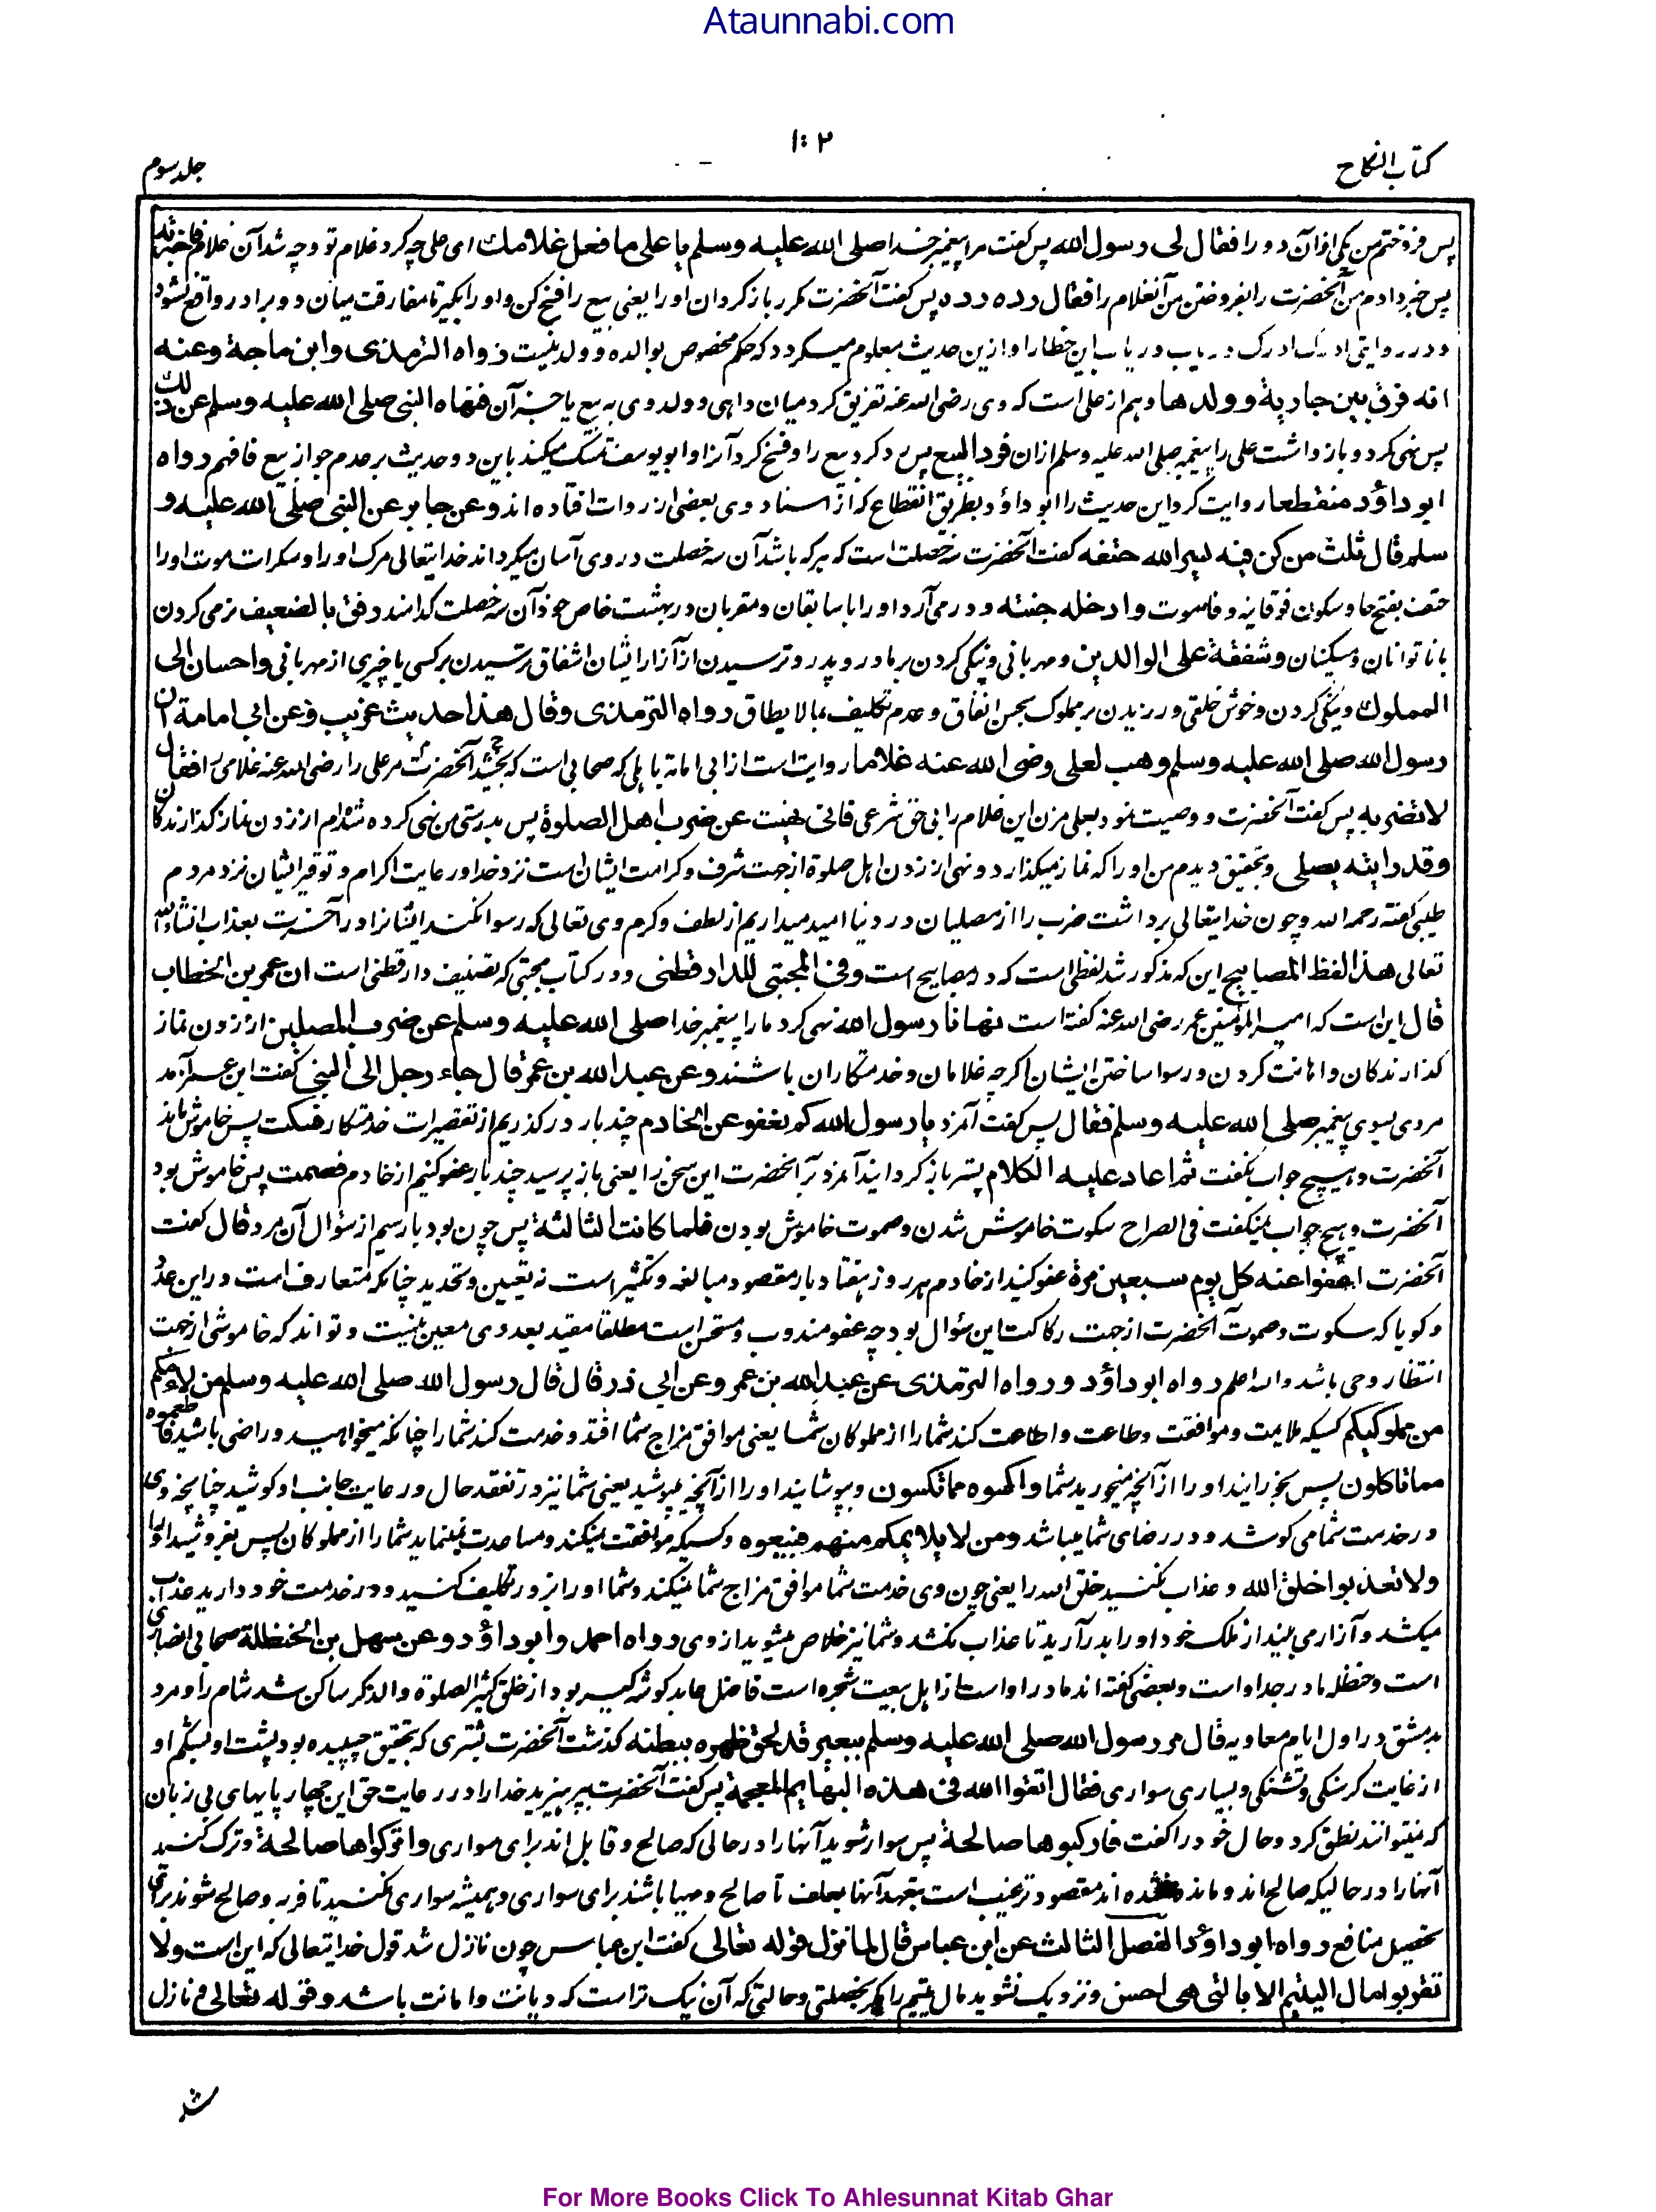 Ataunnabi.com
۱۰۲
کتاب النکاح
جلد سوم
پس فروختم من یکی ازان دو را فقال لی رسول الله پس گفت مرا پیغمبر خدا صلی الله علیه وسلم یا علی ما فعل غلامك ای علی چه کرد غلام تو و چه شد آن غلام فاخبرته
پس خبر دادم من آنحضرت را بفروختن من آنغلام را فقال رده رده پس گفت آنحضرت مکرر بازگردان او را یعنی بیع را فسخ کن و او را بگیر تا مفارقت میان دو برادر واقع نشود
و در روایتی ادرک ادرک دریاب دریاب این خطا را و ازین حدیث معلوم میگردد که حکم مخصوص بوالده و ولد نیست رواه الترمذی وابن ماجة وعنه
انه فرق بین جاریة وولدها و هم از علی است که وی رضی الله عنه تفریق کرد میان داهی و ولد وی به بیع یا جز آن فنهاه النبی صلی الله علیه وسلم عن ذلك
پس نهی کرد و باز داشت علی را پیغمبر صلی الله علیه وسلم ازان فرد البیع پس رد کرد بیع را و فسخ کرد آنرا و ابویوسف تمسک میکند باین دو حدیث بر عدم جواز بیع فافهم رواه
ابو داؤد منقطعا روایت کرد این حدیث را ابو داؤد بطریق انقطاع که از اسناد وی بعضی از روات افتاده اند وعن جابر عن النبی صلی الله علیه و
سلم قال ثلث من کن فیه یسر الله حتفه گفت آنحضرت سه خصلت است که هرکه باشد آن سه خصلت در وی آسان میگرداند خدایتعالی مرگ او را و سکرات موت او را
حتف بفتح حا و سکون فوقانیه و فا موت وادخله جنته و در می آرد او را با سابقان و مقربان در بهشت خاص خود آن سه خصلت کدامند رفق بالضعیف نرمی کردن
با ناتوانان و مسکینان وشفقة علی الوالدین و مهربانی و نیکی کردن بر مادر و پدر و ترسیدن از آزار ایشان اشفاق ترسیدن بر کسی یا چیزی از مهربانی واحسان الی
المملوك و نیکی کردن و خوش خلقی ورزیدن بر مملوک بحسن انفاق و عدم تکلیف بما لا یطاق رواه الترمذی وقال هذا حدیث غریب وعن ابی امامة ان
رسول الله صلی الله علیه وسلم وهب لعلی رضی الله عنه غلاما روایت است از ابی امامه باهلی که صحابی است که بخشید آنحضرت مر علی را رضی الله عنه غلامی را فقال
لا تضربه پس گفت آنحضرت و وصیت نمود بعلی مزن این غلام را بی حق شرعی فانی نهیت عن ضرب اهل الصلوة پس بدرستی من نهی کرده شده ام از زدن نماز گذارندگان
وقد رایته یصلی و بتحقیق دیدم من او را که نماز میگذارد و نهی از زدن اهل صلوة از جهت شرف و کرامت ایشان است نزد خدا و رعایت اکرام و توقیر ایشان نزد مردم
طیبی گفته رحمه الله و چون خدایتعالی برداشت ضرب را از مصلیان در دنیا امید میداریم از لطف و کرم وی تعالی که رسوا نکند ایشانرا در آخرت بعذاب انشاءالله
تعالی هذا لفظ المصابیح این که مذکور شد لفظی است که در مصابیح است وفی المجتبی للدارقطنی و در کتاب مجتبی که تصنیف دارقطنی است ان عمر بن الخطاب
قال این است که امیرالمؤمنین عمر رضی الله عنه گفته است نهانا رسول الله نهی کرد ما را پیغمبر خدا صلی الله علیه وسلم عن ضرب المصلین از زدن نماز
گذارندگان و اهانت کردن و رسوا ساختن ایشان اگرچه غلامان و خدمتگاران باشند وعن عبد الله بن عمر قال جاء رجل الی النبی گفت ابن عمر آمد
مردی بسوی پیغمبر صلی الله علیه وسلم فقال پس گفت آنمرد یا رسول الله کم نعفو عن الخادم چند بار درگذریم از تقصیرات خدمتگار فسکت پس خاموش ماند
آنحضرت و هیچ جواب نگفت ثم اعاد علیه الکلام پستر بازگردانید آنمرد بر آنحضرت این سخن را یعنی باز پرسید چند بار عفو کنیم از خادم فصمت پس خاموش بود
آنحضرت و هیچ جواب نیگفت فی الصراح سکوت خاموش شدن و صموت خاموش بودن فلما کانت الثالثة پس چون بود بار سیم از سؤال آن مرد قال گفت
آنحضرت اعفوا عنه کل یوم سبعین مرة عفو کنید از خادم هر روز هفتاد بار مقصود مبالغه و تکثیر است نه تعیین و تحدید چنانکه متعارف است در این عدد
و گویا که سکوت و صموت آنحضرت از جهت رکاکت این سؤال بود چه عفو مندوب و مستحسن است مطلقا مقید بعددی معین نیست و تواند که خاموشی از جهت
انتظار وحی باشد والله اعلم رواه ابو داؤد ورواه الترمذی عن عبد الله بن عمرو وعن ابی ذر قال قال رسول الله صلی الله علیه وسلم من لاءمکم
من مملوکیکم کسیکه ملایمت و موافقت و طاعت و اطاعت کند شما را از مملوکان شما یعنی موافق مزاج شما افتد و خدمت کند شما را چنانکه میخواهید و راضی باشید فاطعموه
مما تاکلون پس بخورانید او را از آنچه میخورید شما واکسوه مما تکسون و بپوشانید او را از آنچه میپوشید یعنی شما نیز در تفقد حال و رعایت جانب او کوشید چنانچه وی
در خدمت شما می کوشد و در رضای شما میباشد ومن لا یلایمکم منهم فبیعوه و کسیکه موافقت نمیکند و مساعدت نمینماید شما را از مملوکان پس بفروشید او را
ولا تعذبوا خلق الله و عذاب نکنید خلق الله را یعنی چون وی خدمت شما موافق مزاج شما نمیکند و شما او را بزور تکلیف کنید و در خدمت خود دارید عذاب
میکشد و آزار می بیند از ملک خود او را بدر آرید تا عذاب نکشد و شما نیز خلاص میشوید از وی رواه احمد وابو داؤد وعن سهل بن الحنظلة صحابی انصاری
است و حنظله مادر جد اواست و بعضی گفته اند مادر اواست از اهل بیعت شجره است فاضل عابد گوشه گیر بود از خلق کثیر الصلوة والذکر ساکن شد شام را و مرد
بدمشق در اول ایام معاویه قال مر رسول الله صلی الله علیه وسلم ببعیر قد لحق ظهره ببطنه گذشت آنحضرت بشتری که بتحقیق چسپیده بود پشت او بشکم او
از غایت گرسنگی و تشنگی و بسیاری سواری فقال اتقوا الله فی هذه البهایم المعجمة پس گفت آنحضرت بپرهیزید خدا را در رعایت حق این چهارپایهای بی زبان
که نمیتوانند نطق کرد و حال خود را گفت فارکبوها صالحة پس سوار شوید آنها را در حالی که صالح و قابل اند برای سواری واترکوها صالحة و ترک کنید
آنها را در حالیکه صالح اند و مانده نشده اند مقصود ترغیب است بتعهد آنها بعلف تا صالح و مهیا باشند برای سواری و همیشه سواری نکنید تا فربه و صالح شوند برای
تحصیل منافع رواه ابو داؤد الفصل الثالث عن ابن عباس قال لما نزل قوله تعالی گفت ابن عباس چون نازل شد قول خدایتعالی که این است ولا
تقربوا مال الیتیم الا بالتی هی احسن و نزدیک نشوید مال یتیم را مگر بخصلتی و حالتی که آن نیک تر است که دیانت و امانت باشد وقوله تعالی و نازل
شد
For More Books Click To Ahlesunnat Kitab Ghar